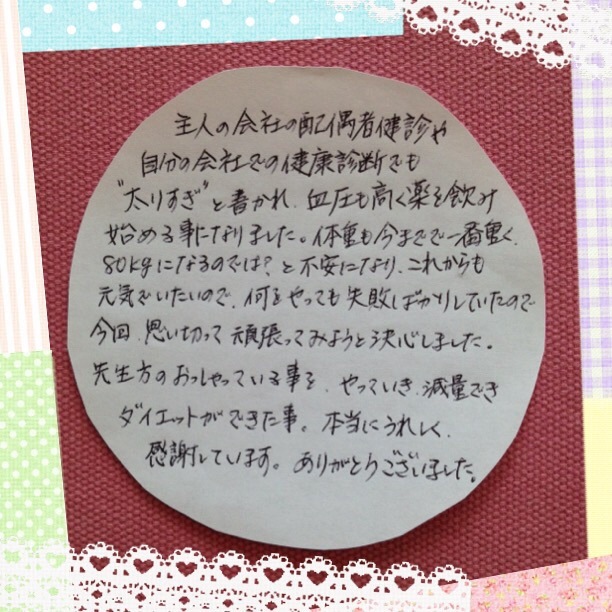 主人の会社の配偶者健診や
自分の会社での健康診断でも
"太りすぎ"と書かれ、血圧も高く薬を飲み
始める事になりました。体重も今までで一番重く、
80kgになるのでは?と不安になり、これからも
元気でいたいので、何をやっても失敗ばかりしていたので
今回、思い切って頑張ってみようと決心しました。
先生方のおっしゃっている事を、やっていき、減量でき
ダイエットができた事。本当にうれしく、
感謝しています。ありがとうございました。